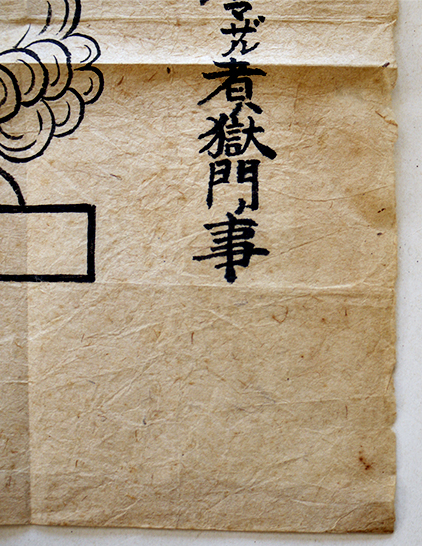 マザル者ハ獄門ノ事